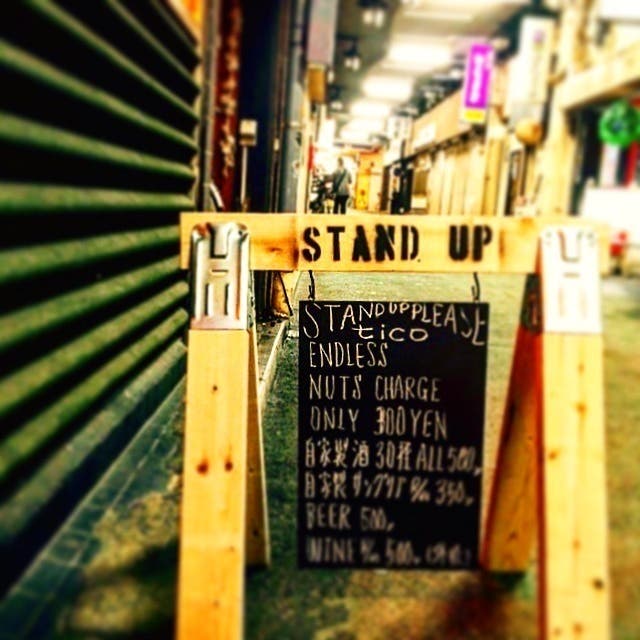 STAND UP
STAND UP PLEASE
tico
ENDLESS
NUTS CHARGE
ONLY 300YEN
自家製酒 30種 ALL 500,
自家製 % 350,
BEER 500,
WINE % 500,